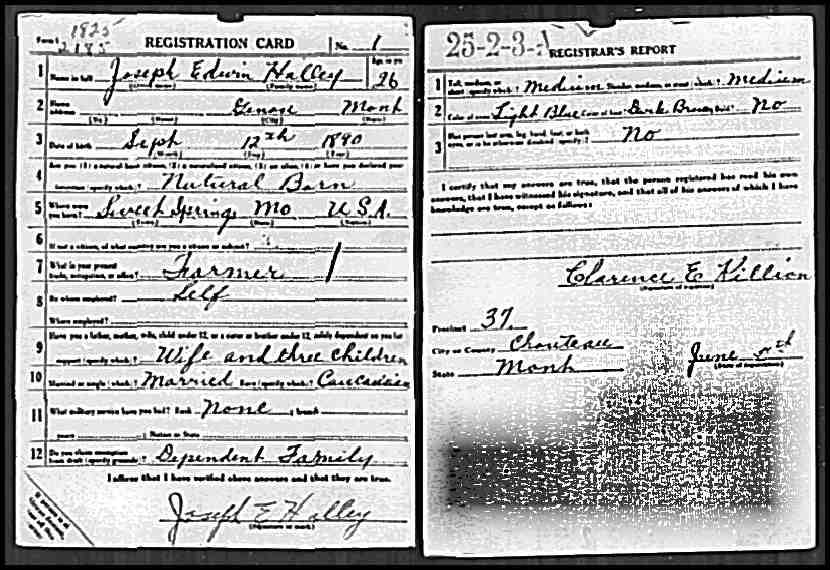 1825
Form 1 2185 REGISTRATION CARD No. 1
1 Name in full Joseph Edwin Halley Age, in yrs. 26
(Given name) (Family name)
2 Home address Genose Mont
(No.) (Street) (City) (State)
3 Date of birth Sept 12th 1890
(Month) (Day) (Year)
Are you (1) a natural born citizen, (2) a naturalized citizen, (3) an alien, (4) or have you declared your
4 intention (specify which)? Natural Born
5 Where were you born? Sweet Springs Mo U.S.A.
(Town) (State) (Nation)
6 If not a citizen, of what country are you a citizen or subject?
7 What is your present trade, occupation, or office? Farmer
8 By whom employed? Self
Where employed?
Have you a father, mother, wife, child under 12, or a sister or brother under 12, solely dependent on you for
9 support (specify which)? Wife and three children
10 Married or single (which)? Married Race (specify which)? Caucasian
11 What military service have you had? Rank None ; branch
years ; Nation or State
12 Do you claim exemption from draft (specify grounds)? Dependent Family
I affirm that I have verified above answers and that they are true.
Joseph E Halley
(Signature or mark)
25-2-3- REGISTRAR'S REPORT
1 Tall, medium, or short (specify which)? Medium Slender, medium, or stout (which)? Medium
2 Color of eyes Light Blue Color of hair Dark Brown Bald? No
3 Has person lost arm, leg, hand, foot, or both eyes, or is he otherwise disabled (specify)? No
I certify that my answers are true, that the person registered has read his own
answers, that I have witnessed his signature, and that all of his answers of which I have
knowledge are true, except as follows:
Clarence E Killion
(Signature of registrar)
Precinct 37
City or County Chouteau
State Mont June
(Date of registration)